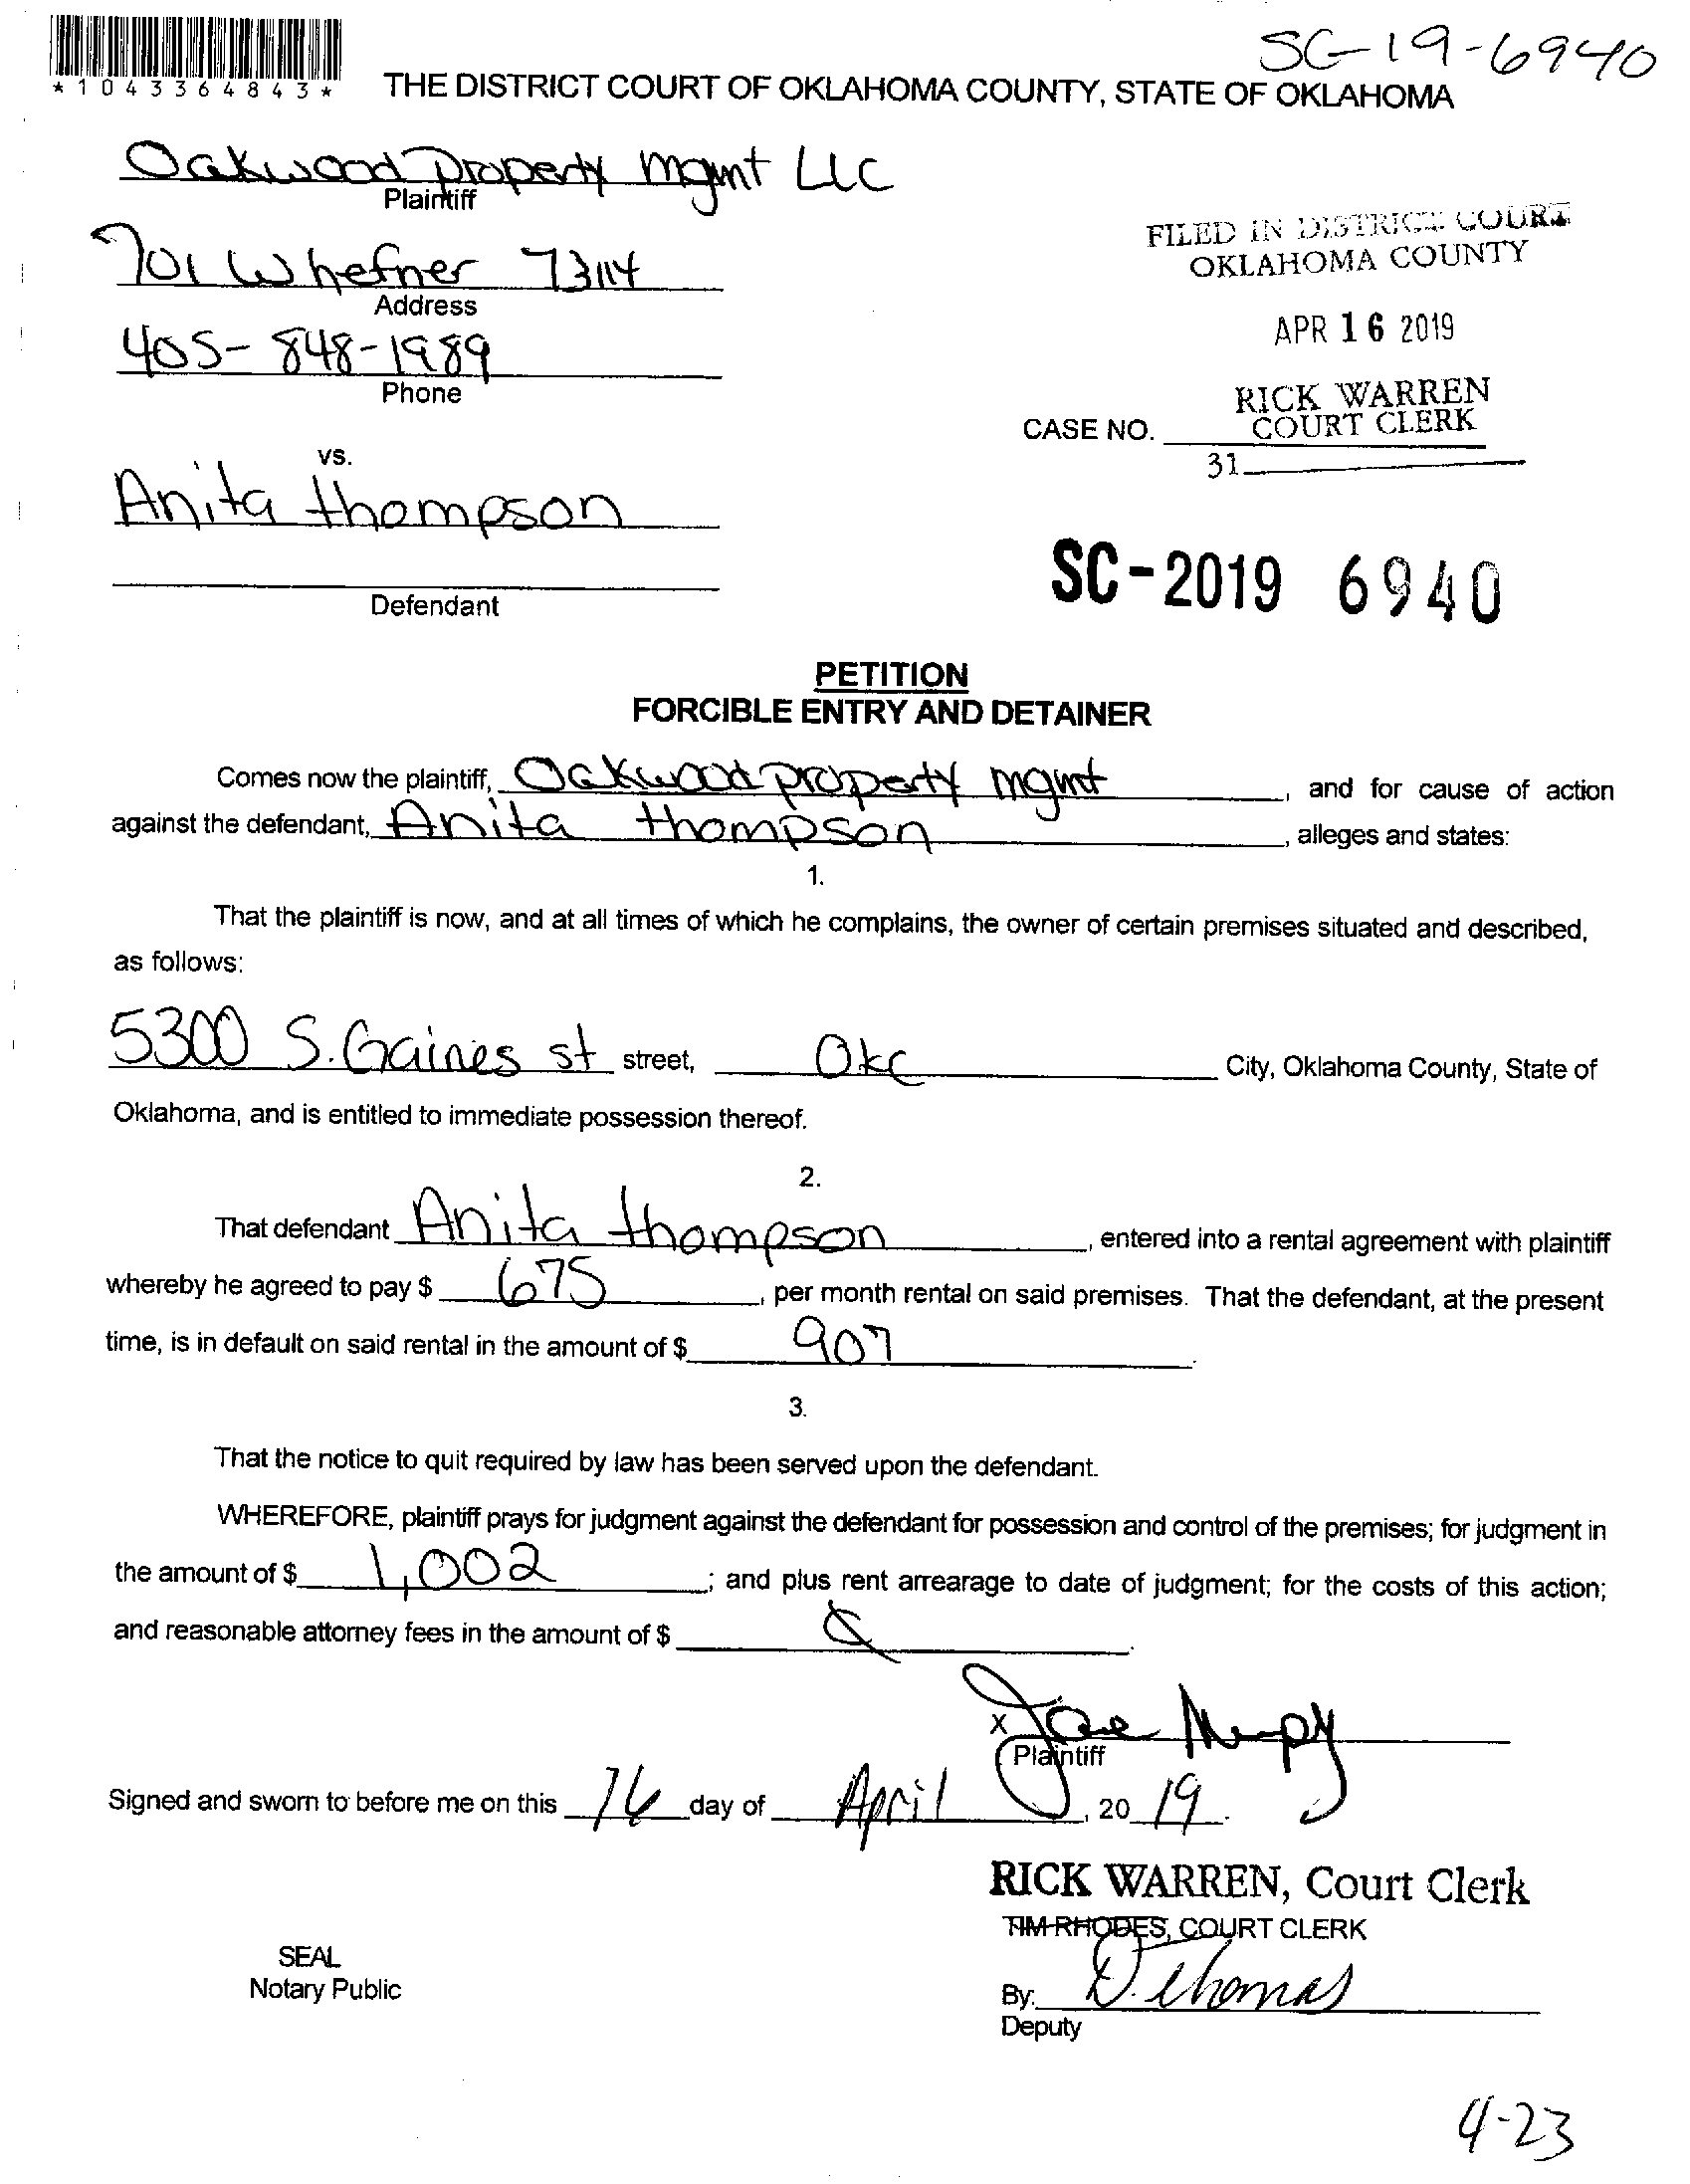 SC-19-6940
*1043364843*
THE DISTRICT COURT OF OKLAHOMA COUNTY, STATE OF OKLAHOMA
Oakwood Property mgmt LLC
Plaintiff
701 W hefner 73114
Address
405-848-1989
Phone
FILED IN DISTRICT COURT
OKLAHOMA COUNTY
APR 16 2019
RICK WARREN
COURT CLERK
CASE NO.
31
vs.
Anita thompson
Defendant
SC-2019 6940
PETITION
FORCIBLE ENTRY AND DETAINER
Comes now the plaintiff, Oakwood property mgmt, and for cause of action
against the defendant, Anita thompson, alleges and states:
1.
That the plaintiff is now, and at all times of which he complains, the owner of certain premises situated and described,
as follows:
5300 S. Gaines st street, Okc City, Oklahoma County, State of
Oklahoma, and is entitled to immediate possession thereof.
2.
That defendant Anita thompson, entered into a rental agreement with plaintiff
whereby he agreed to pay $ 675, per month rental on said premises. That the defendant, at the present
time, is in default on said rental in the amount of $ 907.
3.
That the notice to quit required by law has been served upon the defendant.
WHEREFORE, plaintiff prays for judgment against the defendant for possession and control of the premises; for judgment in
the amount of $ 1,002; and plus rent arrearage to date of judgment; for the costs of this action;
and reasonable attorney fees in the amount of $
x
Plaintiff
Signed and sworn to before me on this 16 day of April, 2019.
RICK WARREN, Court Clerk
TIM RHODES, COURT CLERK
SEAL
Notary Public
By: D. Thomas
Deputy
4-23